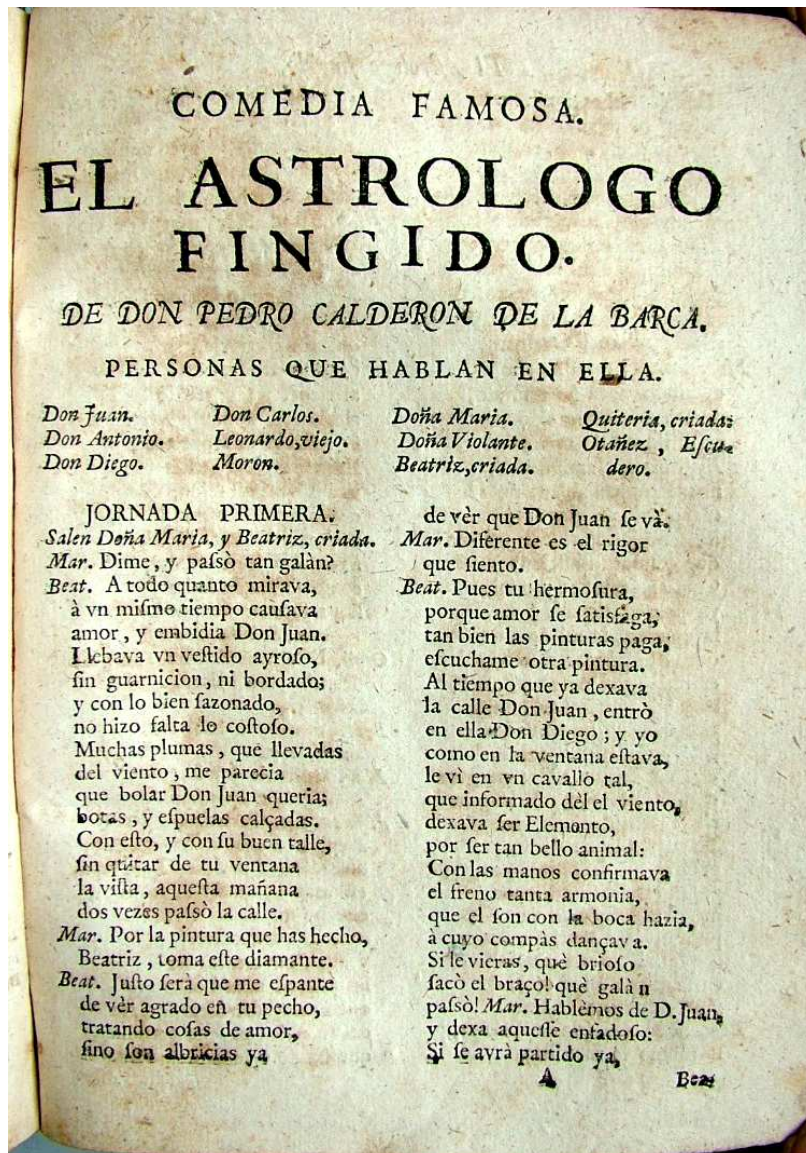 COMEDIA FAMOSA.
EL ASTROLOGO
FINGIDO.
DE DON PEDRO CALDERON DE LA BARCA.
PERSONAS QUE HABLAN EN ELLA.
Don Juan.
Don Antonio.
Don Diego.
Don Carlos.
Leonardo, viejo.
Moron.
Doña Maria.
Doña Violante.
Beatriz, criada.
Quiteria, criada.
Otañez, Eſcu-
dero.
JORNADA PRIMERA.
Salen Doña Maria, y Beatriz, criada.
Mar. Dime, y paſsò tan galàn?
Beat. A todo quanto mirava,
à vn miſmo tiempo cauſava
amor, y embidia Don Juan.
Llebava vn veſtido ayroſo,
ſin guarnicion, ni bordado;
y con lo bien ſazonado,
no hizo falta lo coſtoſo.
Muchas plumas, que llevadas
del viento, me parecia
que bolar Don Juan queria;
botas, y eſpuelas calçadas.
Con eſto, y con ſu buen talle,
ſin quitar de tu ventana
la viſta, aqueſta mañana
dos vezes paſsò la calle.
Mar. Por la pintura que has hecho,
Beatriz, toma eſte diamante.
Beat. Juſto ſerà que me eſpante
de vèr agrado en tu pecho,
tratando coſas de amor,
ſino ſon albricias ya
de vèr que Don Juan ſe và.
Mar. Diferente es el rigor
que ſiento.
Beat. Pues tu hermoſura,
porque amor ſe ſatisfaga,
tan bien las pinturas paga,
eſcuchame otra pintura.
Al tiempo que ya dexava
la calle Don Juan, entrò
en ella Don Diego; y yo
como en la ventana eſtava,
le vì en vn cavallo tal,
que informado dèl el viento,
dexava ſer Elemonto,
por ſer tan bello animal:
Con las manos confirmava
el freno tanta armonia,
que el ſon con la boca hazia,
à cuyo compàs dançava.
Si le vieras, què brioſo
ſacò el braço! què galàn
paſsò! Mar. Hablèmos de D. Juan,
y dexa aqueſſe enfadoſo:
Si ſe avrà partido ya,
A
Bea.